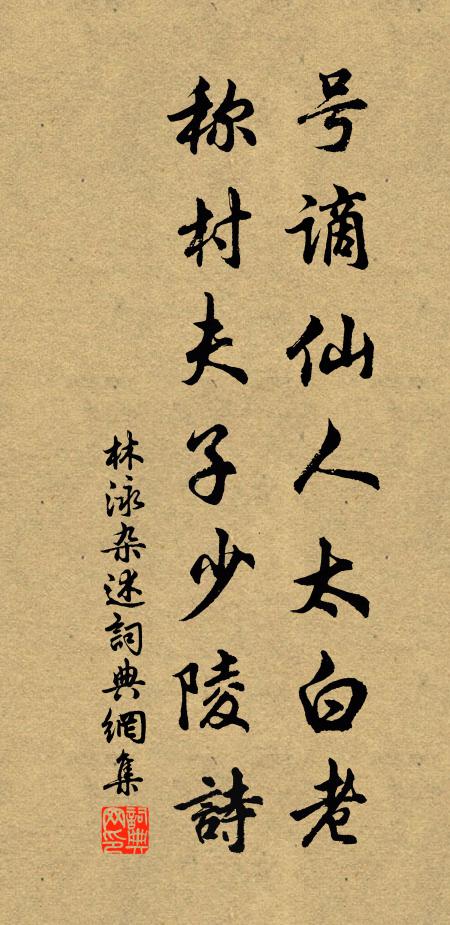 号谪仙人太白老
称村夫子少陵詩
林泳杂述詞典網集
詞典网印